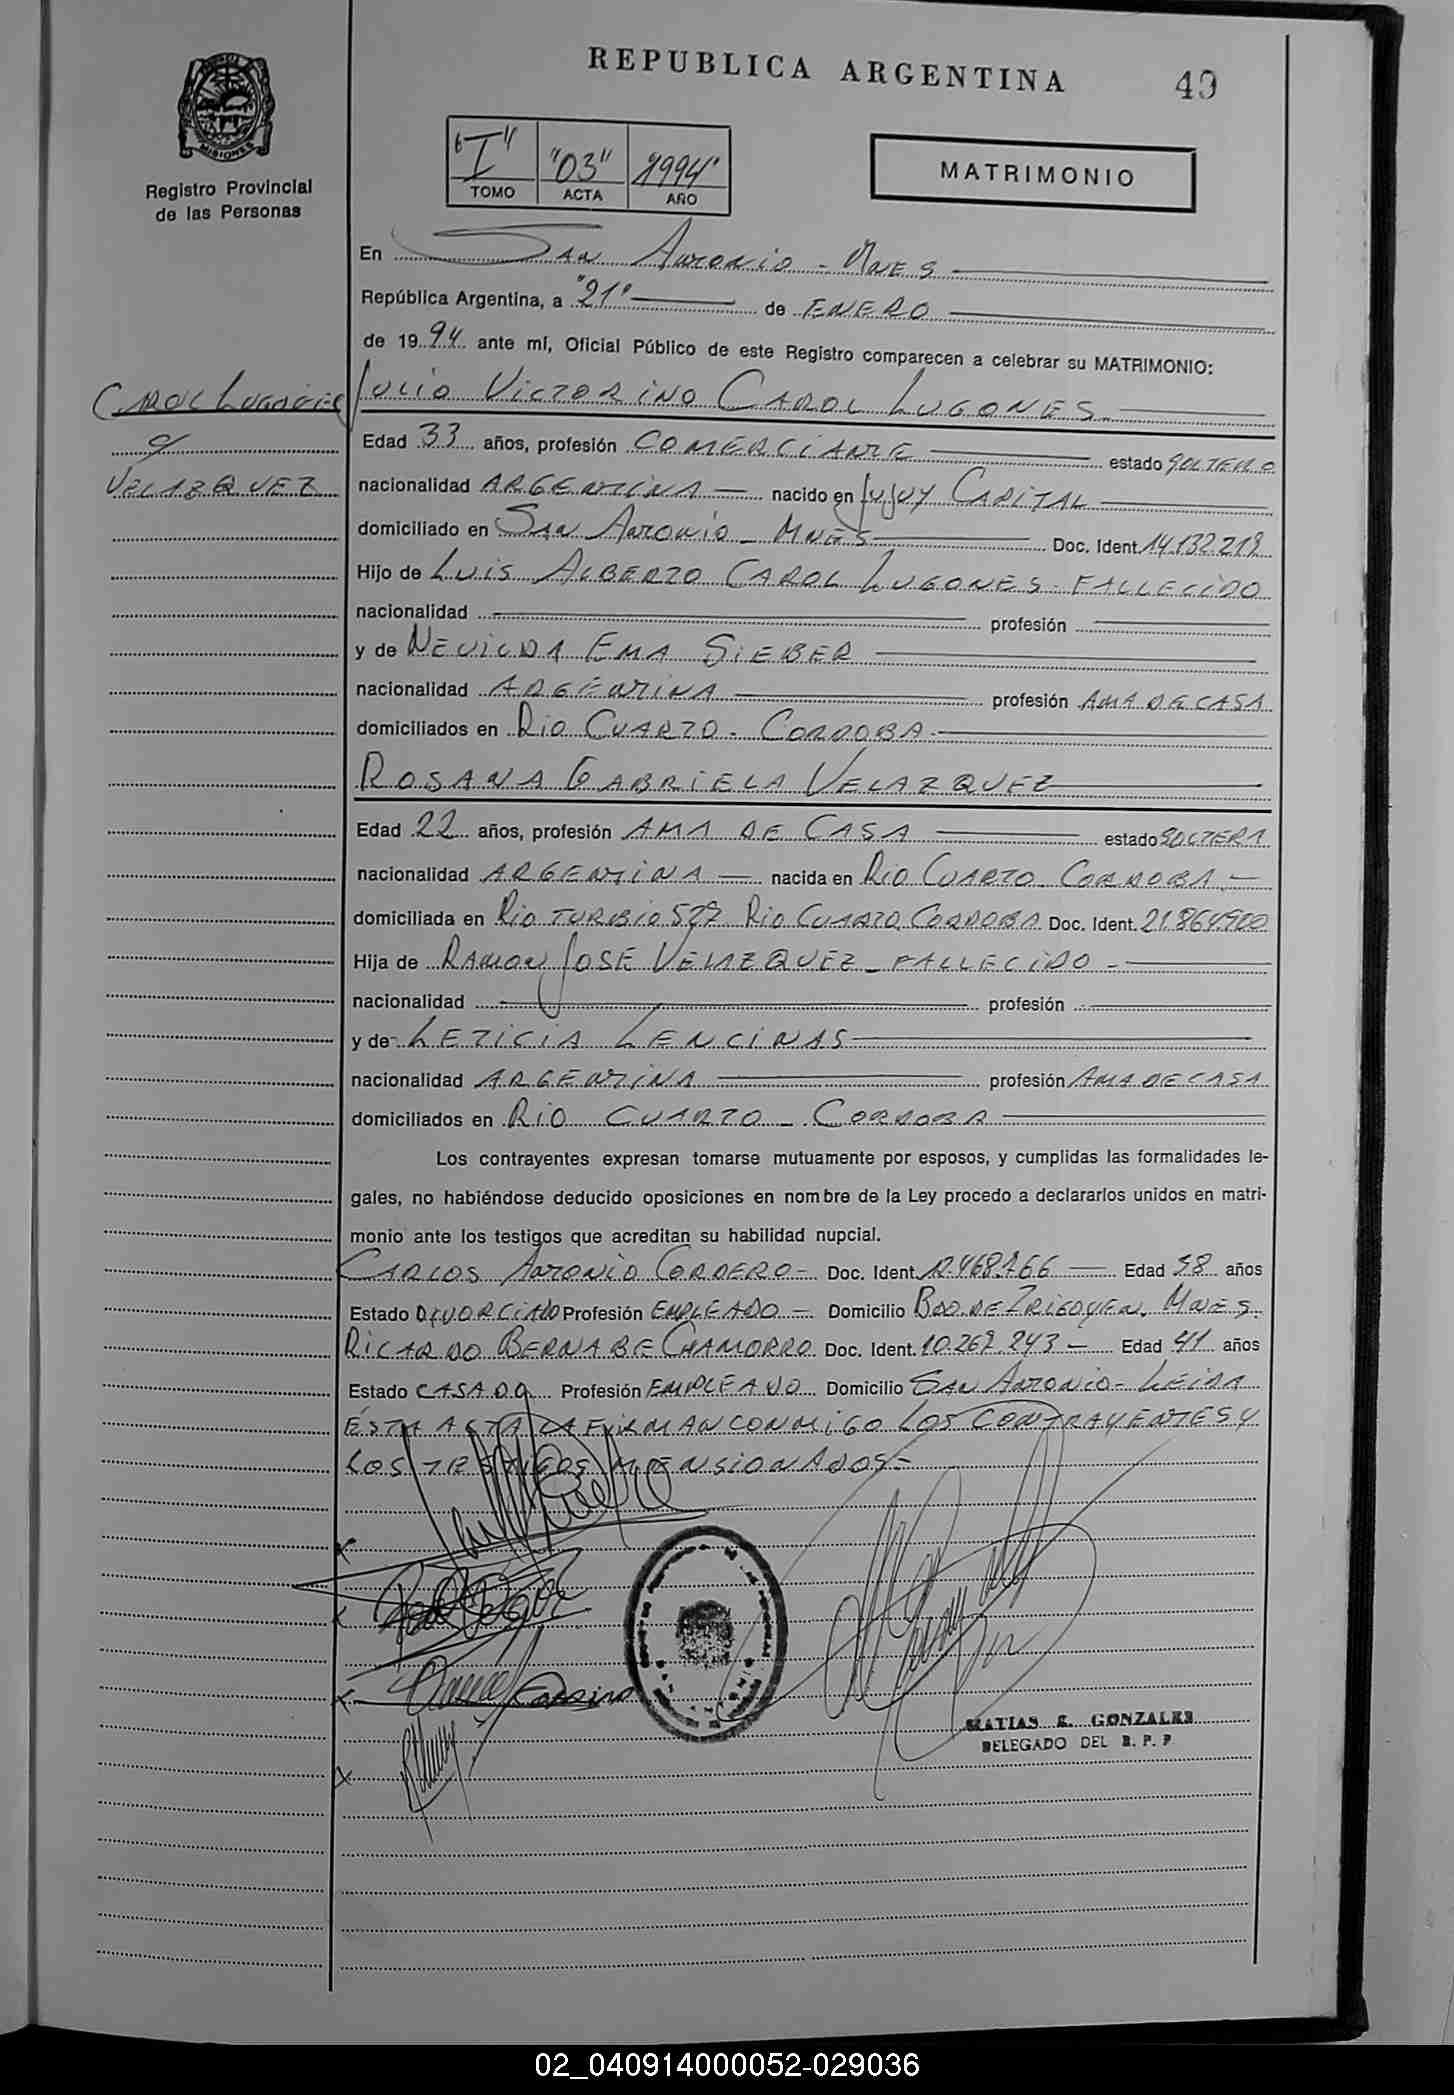 REPUBLICA ARGENTINA
49
MISIONES
Registro Provincial
de las Personas
"I" "03" "1994"
TOMO ACTA AÑO
MATRIMONIO
En SAN ANTONIO - MNES
República Argentina, a "21" de ENERO
de 1994 ante mí, Oficial Público de este Registro comparecen a celebrar su MATRIMONIO:
CAROL LUGONES
c/
VELAZQUEZ
JULIO VICTORINO CAROL LUGONES
Edad 33 años, profesión COMERCIANTE estado SOLTERO
nacionalidad ARGENTINA nacido en JUJUY CAPITAL
domiciliado en SAN ANTONIO - MNES Doc. Ident. 14.132.218
Hijo de LUIS ALBERTO CAROL LUGONES - FALLECIDO
nacionalidad profesión
y de NEVILDA EMA SIEBER
nacionalidad ARGENTINA profesión AMA DE CASA
domiciliados en RIO CUARTO - CORDOBA -
ROSANA GABRIELA VELAZQUEZ
Edad 22 años, profesión AMA DE CASA estado SOLTERA
nacionalidad ARGENTINA nacida en RIO CUARTO - CORDOBA -
domiciliada en RIO TURBIO 527 RIO CUARTO CORDOBA Doc. Ident. 21.864.900
Hija de RAMON JOSE VELAZQUEZ - FALLECIDO -
nacionalidad profesión
y de LETICIA LENCINAS
nacionalidad ARGENTINA profesión AMA DE CASA
domiciliados en RIO CUARTO - CORDOBA
Los contrayentes expresan tomarse mutuamente por esposos, y cumplidas las formalidades le-
gales, no habiéndose deducido oposiciones en nombre de la Ley procedo a declararlos unidos en matri-
monio ante los testigos que acreditan su habilidad nupcial.
CARLOS ANTONIO CORDERO - Doc. Ident. Edad años
Estado DIVORCIADO Profesión EMPLEADO - Domicilio BDO. DE IRIGOYEN. MNES.
RICARDO BERNABE CHAMORRO Doc. Ident. 10.269.243 - Edad 41 años
Estado CASADO Profesión EMPLEADO Domicilio SAN ANTONIO - LEIDA
ÉSTA ACTA LA FIRMAN CONMIGO LOS CONTRAYENTES Y
LOS TESTIGOS MENSIONADOS -
MATIAS E. GONZALES
DELEGADO DEL R. P. P.
02_040914000052-029036